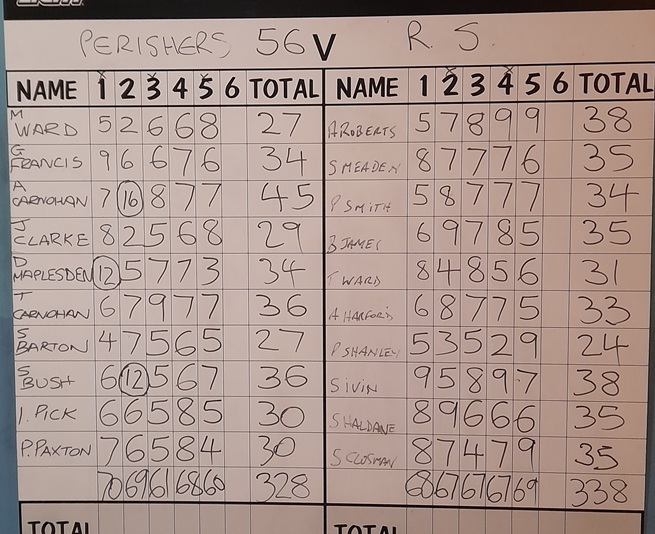 PERISHERS 56 V R. S.
NAME 1 2 3 4 5 6 TOTAL NAME 1 2 3 4 5 6 TOTAL
M WARD 5 2 6 6 8 27 A ROBERTS 5 7 8 9 9 38
G FRANCIS 9 6 6 7 6 34 S MEADEN 8 7 7 7 6 35
A CARNOHAN 7 16 8 7 7 45 P SMITH 5 8 7 7 7 34
J CLARKE 8 2 5 6 8 29 B JAMES 6 9 7 8 5 35
D MAPLESDEN 12 5 7 7 3 34 T WARD 8 4 8 5 6 31
T CARNOHAN 6 7 9 7 7 36 A HARFORD 6 8 7 7 5 33
S BARTON 4 7 5 6 5 27 P SHANLEY 5 3 5 2 9 24
S BUSH 6 12 5 6 7 36 S IVIN 9 5 8 9 7 38
I. PICK 6 6 5 8 5 30 S HALDANE 8 9 6 6 6 35
P. PAXTON 7 6 5 8 4 30 S CLOSMAN 8 7 4 7 9 35
70 69 61 68 60 328 68 67 67 67 69 338
TOTAL TOTAL